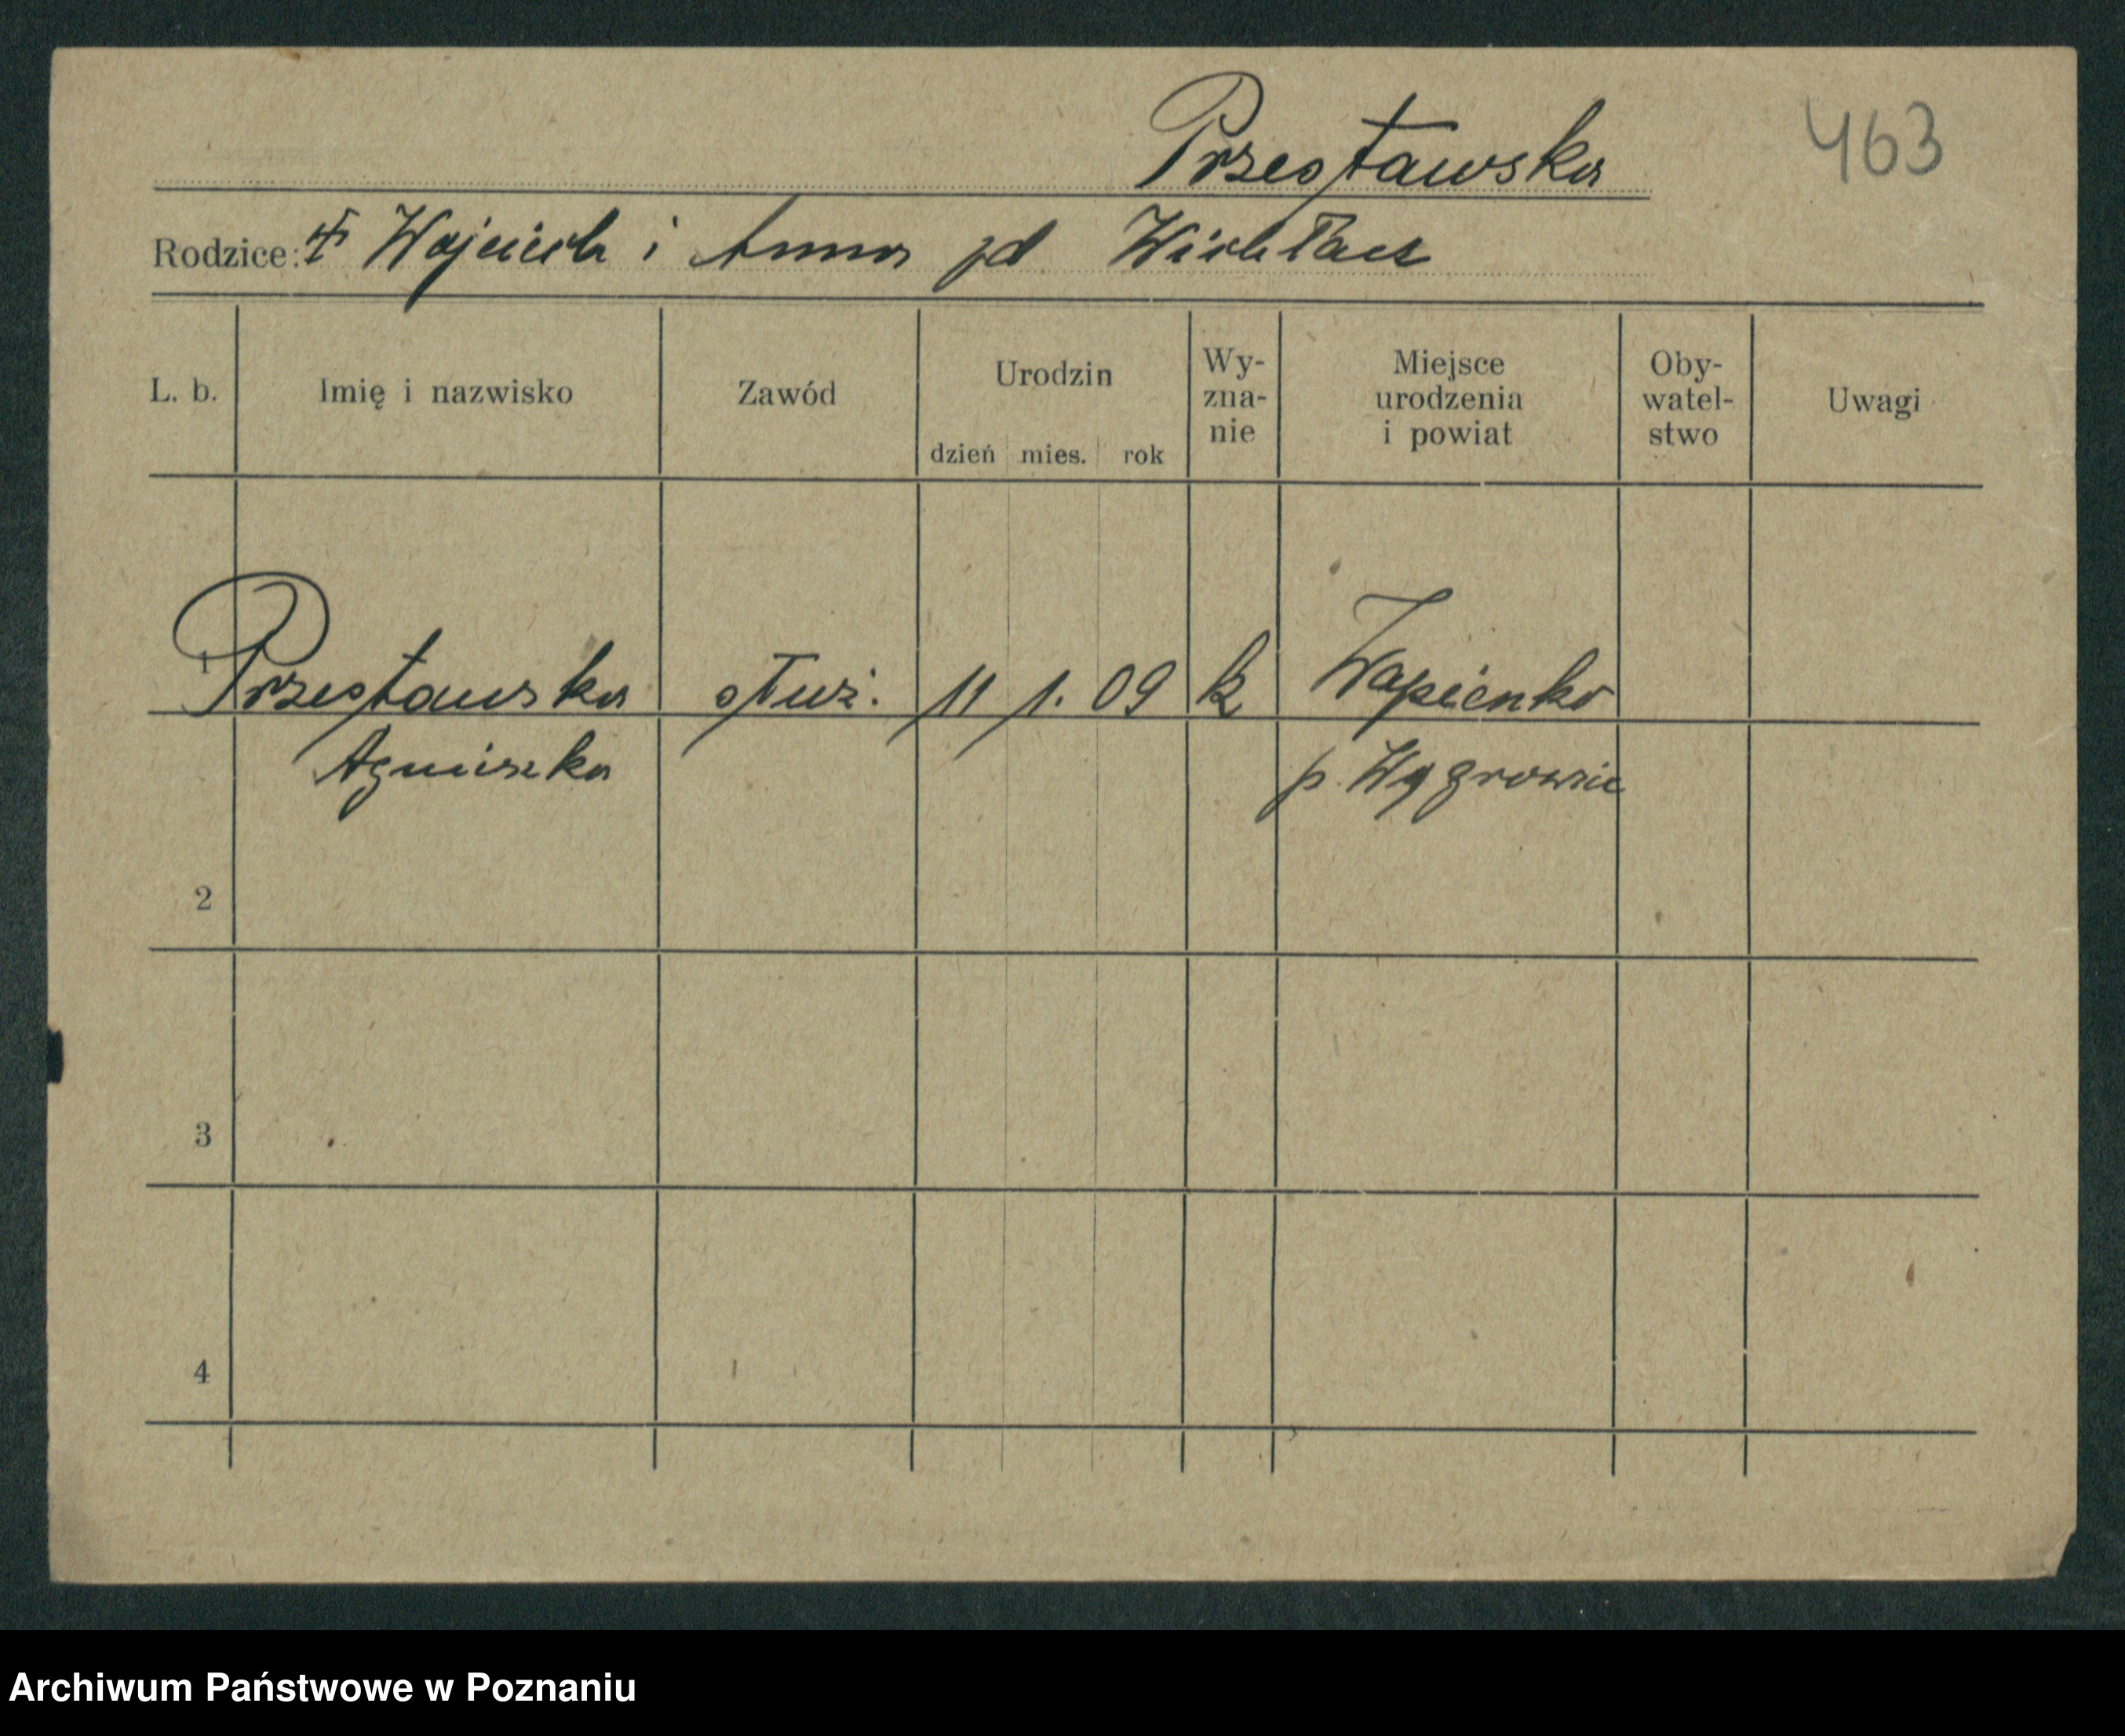 Przesławska
463
Rodzice: Wojciech i Anna zd
L. b.
Imię i nazwisko
Zawód
Urodzin
dzień mies. rok
Wy-
zna-
nie
Miejsce
urodzenia
i powiat
Oby-
watel-
stwo
Uwagi
1
Przesławska
Agnieszka
służ.
11 1. 09
k
Wapienko
p. Wągrowiec
2
3
4
Archiwum Państwowe w Poznaniu